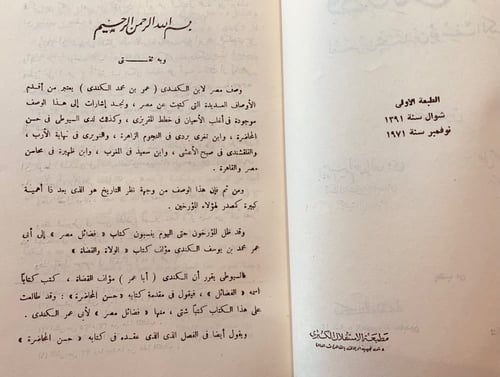 الطبعة الاولى
شوال سنة ١٣٩١
نوفمبر سنة ١٩٧١
مطبعة الاستقلال الكبرى
بسم الله الرحمن الرحيم
وبه ثقتى
وصف مصر لابن الكندى ( عمر بن محمد الكندى ) يعتبر من أقدم
الأوصاف العديدة التى كتبت عن مصر ، ونجد إشارات إلى هذا الوصف
موجودة فى أغلب الأحيان فى خطط المقريزى ، وكذلك لدى السيوطى فى حسن
المحاضرة ، وابن تغرى بردى فى النجوم الزاهرة ، والنويرى فى نهاية الأرب ،
والقلقشندى فى صبح الأعشى ، وابن سعيد فى المغرب ، وابن ظهيرة فى محاسن
مصر والقاهرة .
ومن ثم فإن هذا الوصف من وجهة نظر التاريخ هو الذى يعد ذا أهمية
كبيرة كمصدر لهؤلاء المؤرخين .
وقد ظل المؤرخون حتى اليوم ينسبون كتاب « فضائل مصر » إلى أبى
عمر محمد بن يوسف الكندى مؤلف كتاب « الولاة والقضاة »
فالسيوطى يقرر أن الكندى ( أبا عمر ) مؤلف القضاة ، كتب كتابا
اسمه « الفضائل » ، فيقول فى مقدمة كتابه « حسن المحاضرة » : وقد طالعت
على هذا الكتاب كتبا شتى ، منها « فضائل مصر » لأبى عمر الكندى .
ويقول أيضا فى الفصل الذى الذى عقده فى كتابه « حسن المحاضرة »